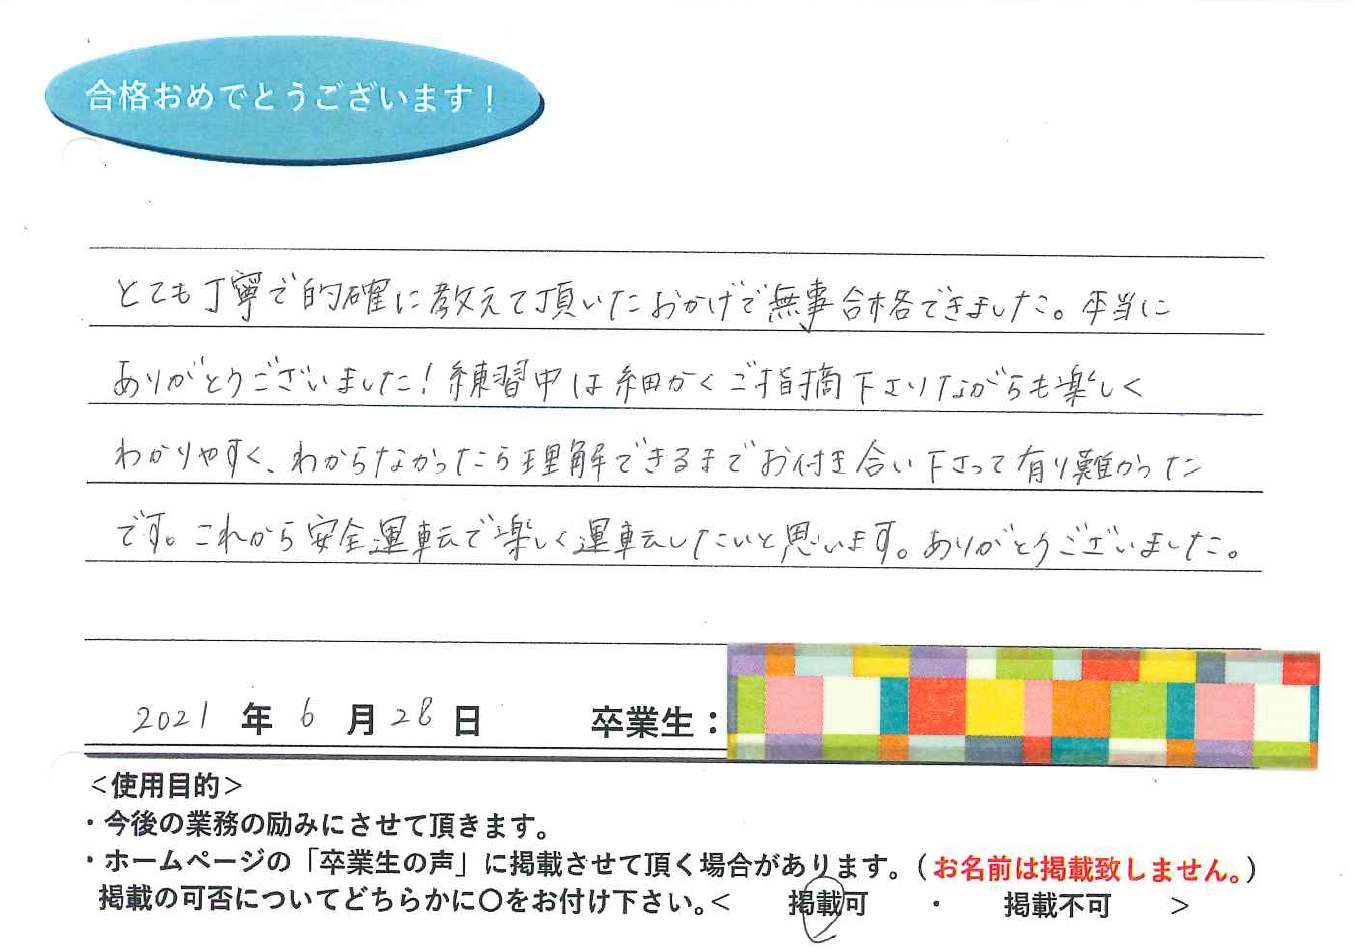 合格おめでとうございます！
とても丁寧で的確に教えて頂いたおかげで無事合格できました。本当に
ありがとうございました！練習中は細かくご指摘下さりながらも楽しく
わかりやすく、わからなかったら理解できるまでお付き合い下さって有り難かった
です。これから安全運転で楽しく運転したいと思います。ありがとうございました。
2021 年 6 月 28 日 卒業生：
＜使用目的＞
・今後の業務の励みにさせて頂きます。
・ホームページの「卒業生の声」に掲載させて頂く場合があります。（お名前は掲載致しません。）
掲載の可否についてどちらかに〇をお付け下さい。＜ 掲載可 ・ 掲載不可 ＞